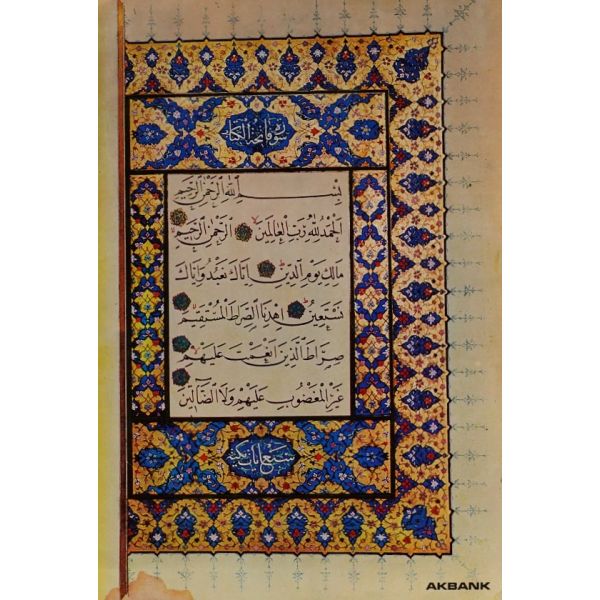 سورة فاتحة الكتاب
بِسْمِ اللهِ الرَّحْمٰنِ الرَّحِيمِ
اَلْحَمْدُ لِلّٰهِ رَبِّ الْعَالَمِينَ الرَّحْمٰنِ الرَّحِيمِ
مَالِكِ يَوْمِ الدِّينِ اِيَّاكَ نَعْبُدُ وَاِيَّاكَ
نَسْتَعِينُ اِهْدِنَا الصِّرَاطَ الْمُسْتَقِيمَ
صِرَاطَ الَّذِينَ اَنْعَمْتَ عَلَيْهِمْ
غَيْرِ الْمَغْضُوبِ عَلَيْهِمْ وَلَا الضَّالِّينَ
سبع ايات مكية
AKBANK